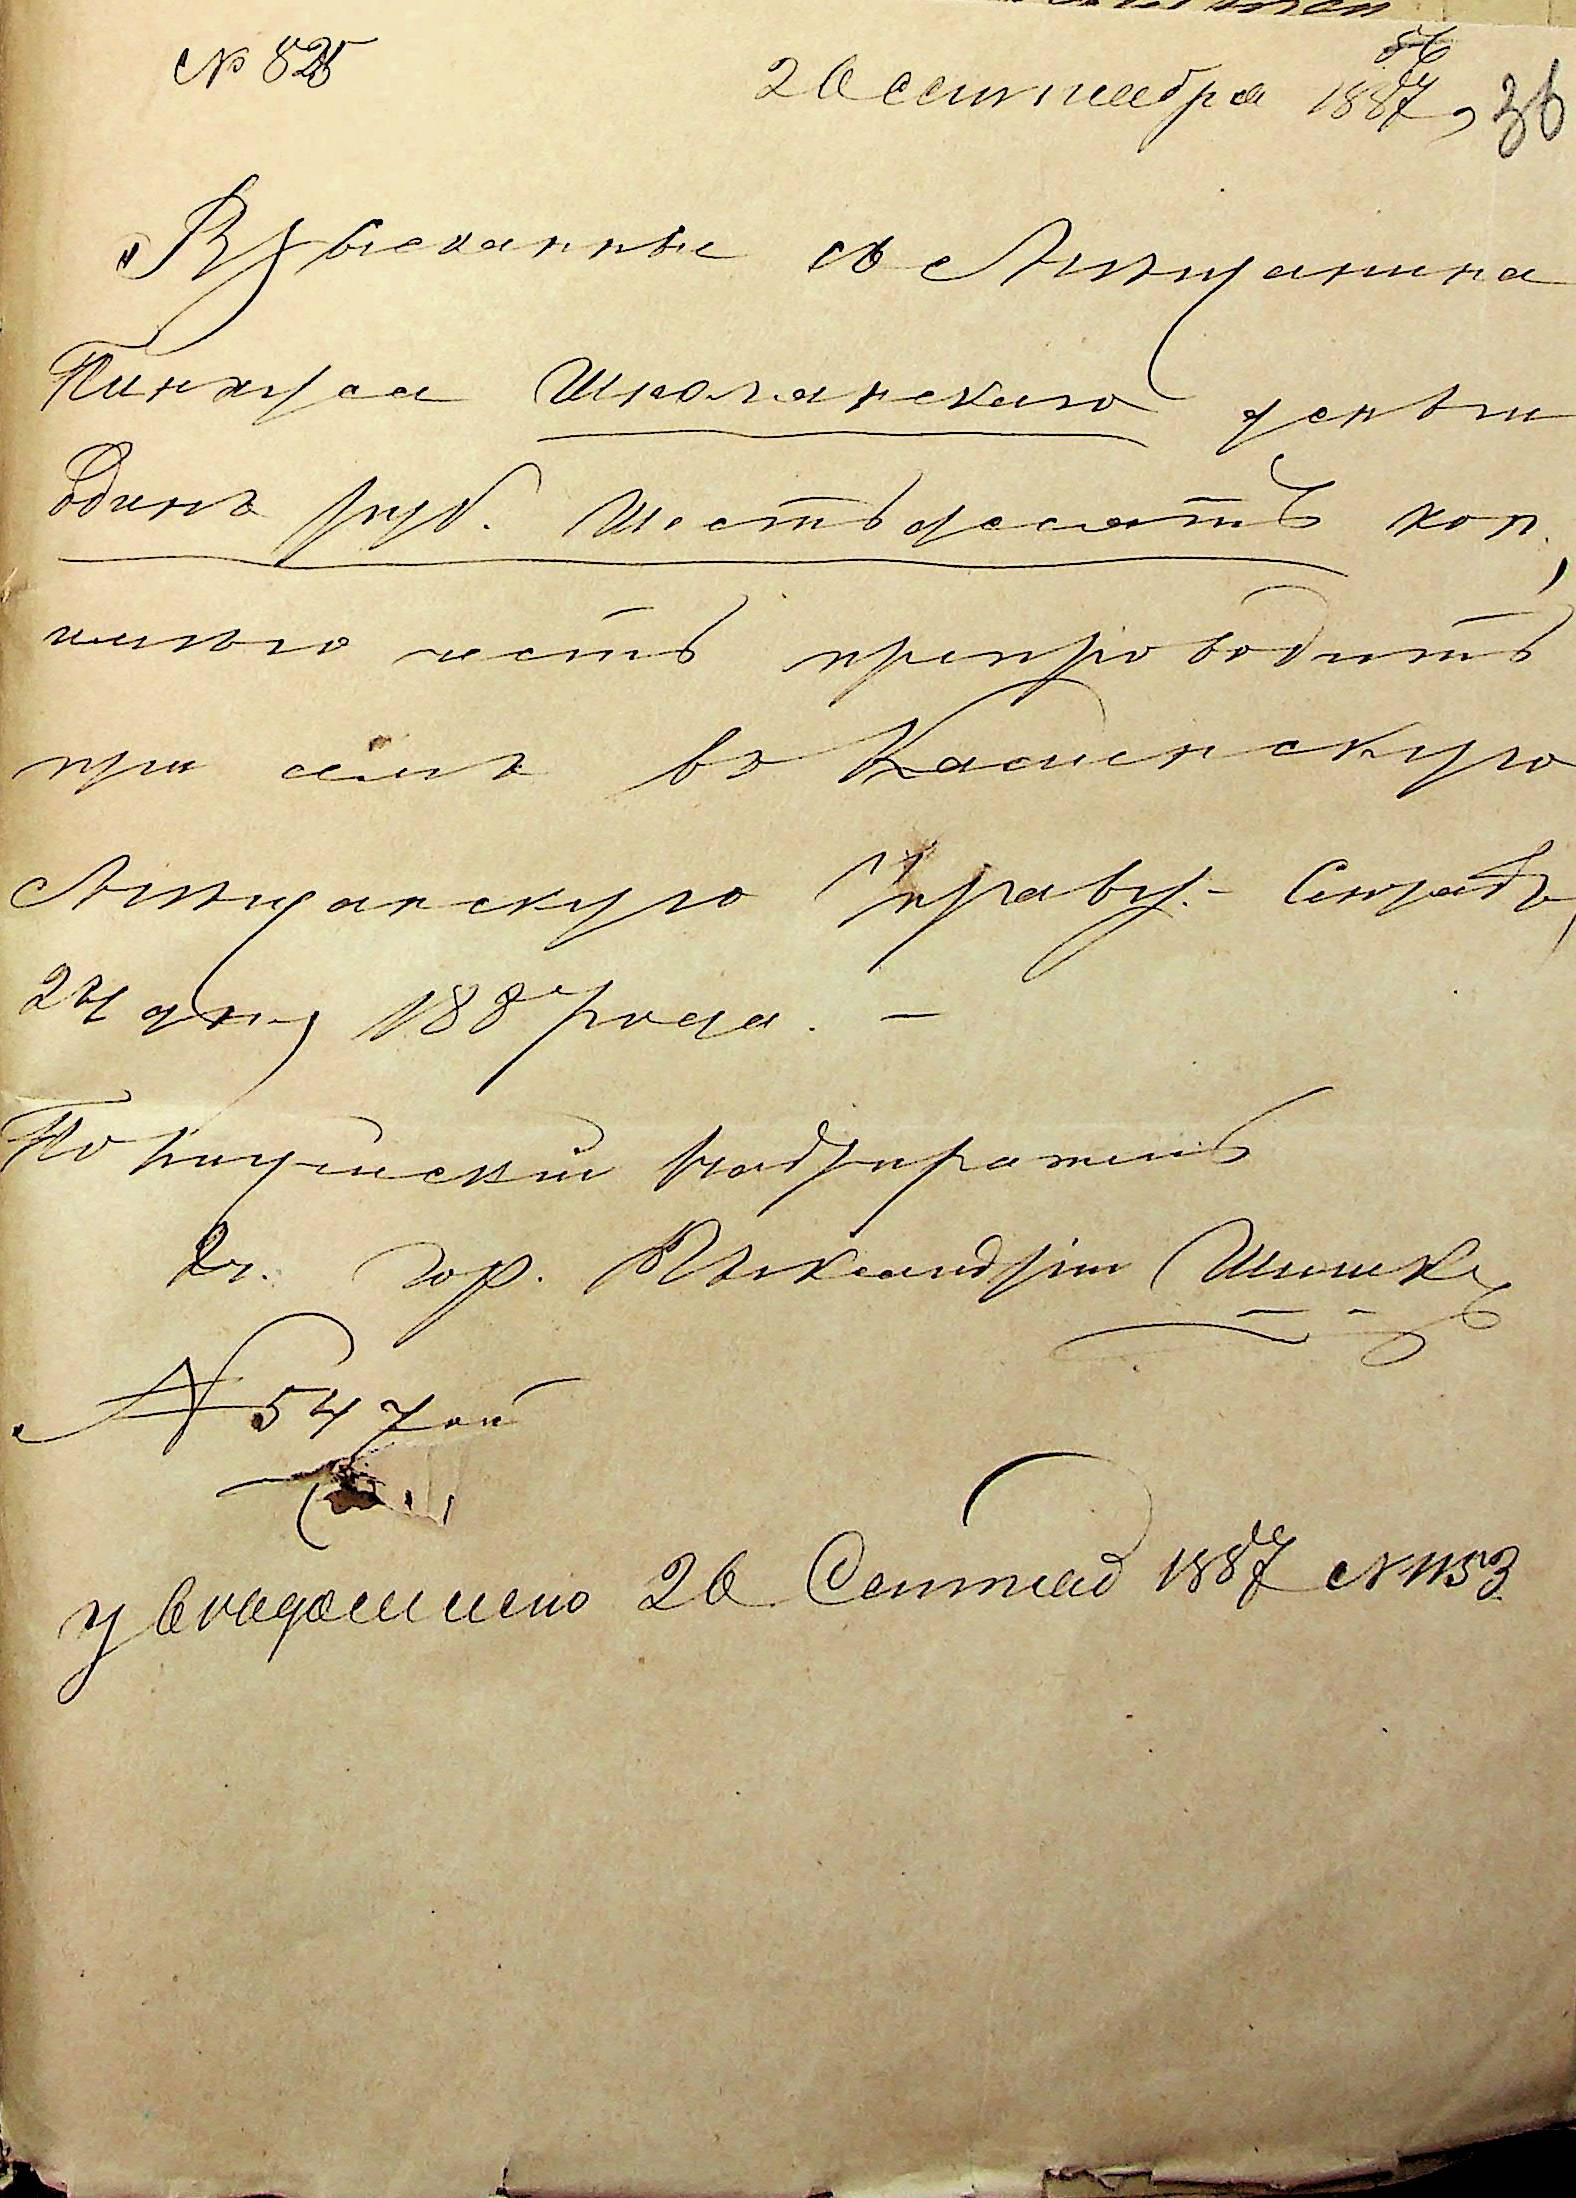 № 825
26 сентября 1887, 36
Взысканные съ Мѣщанина
Пинхуса Школянскаго деньги
Одинъ руб. Шестьдесятъ коп.,
имѣю честь препроводить
при семъ въ Каменскую
Мѣщанскую Управу. Сентяб.
24 дня 1887 года. —
Полицейскій Надзиратель
2 ч. гор. Александріи
№ 547 ой
уведомлено 26 Сентяб 1887 № 1153